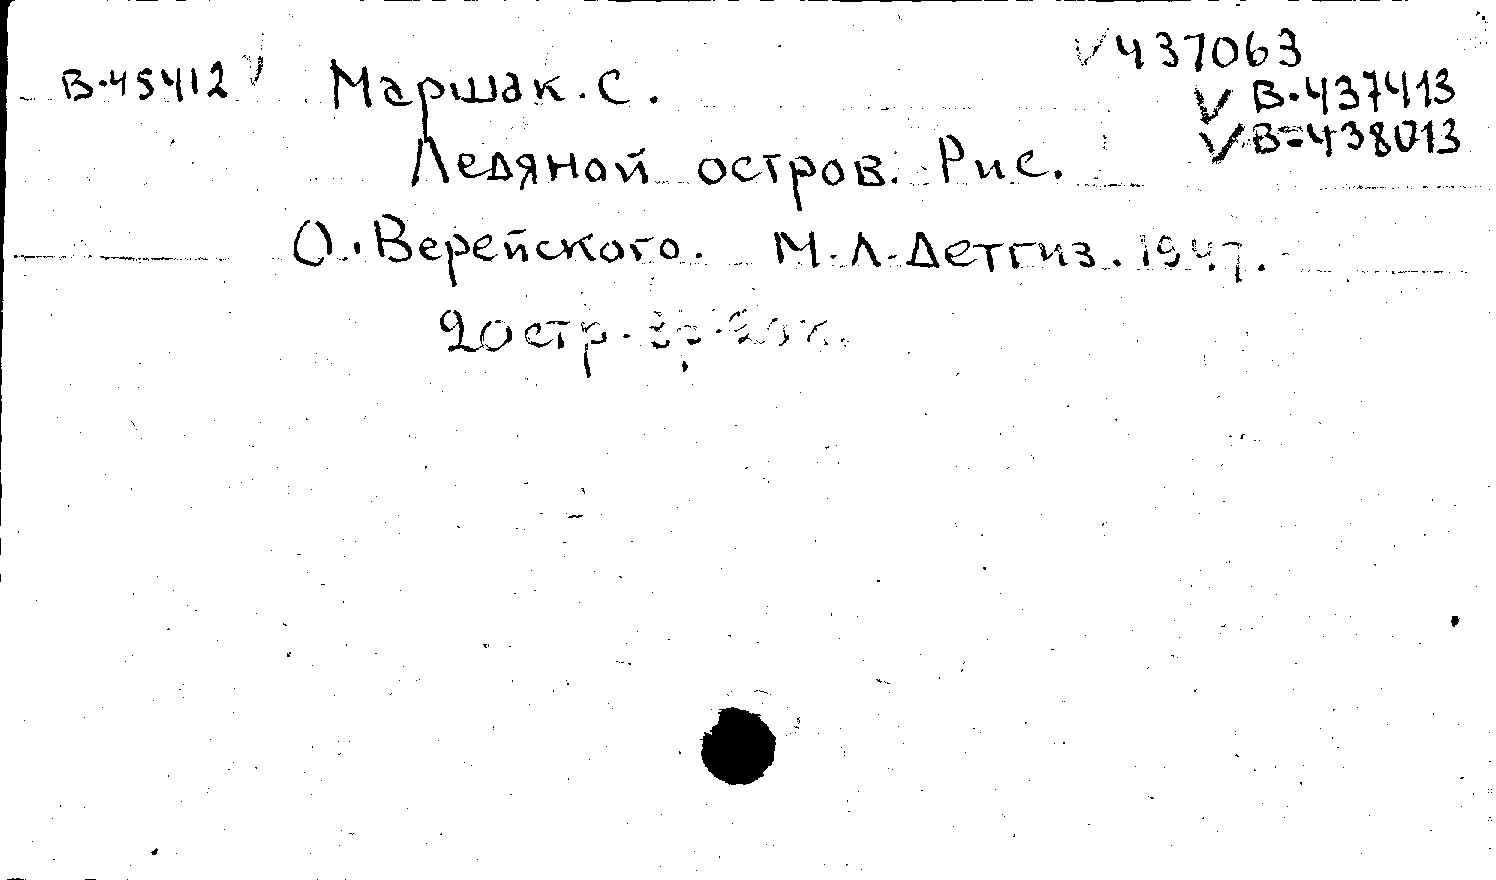 В.45412 Маршак. С. 437063
В.437413
Ледяной остров. Рис. В=438013
О. Верейского. М.Л. Детгиз. 1947.
20 стр.